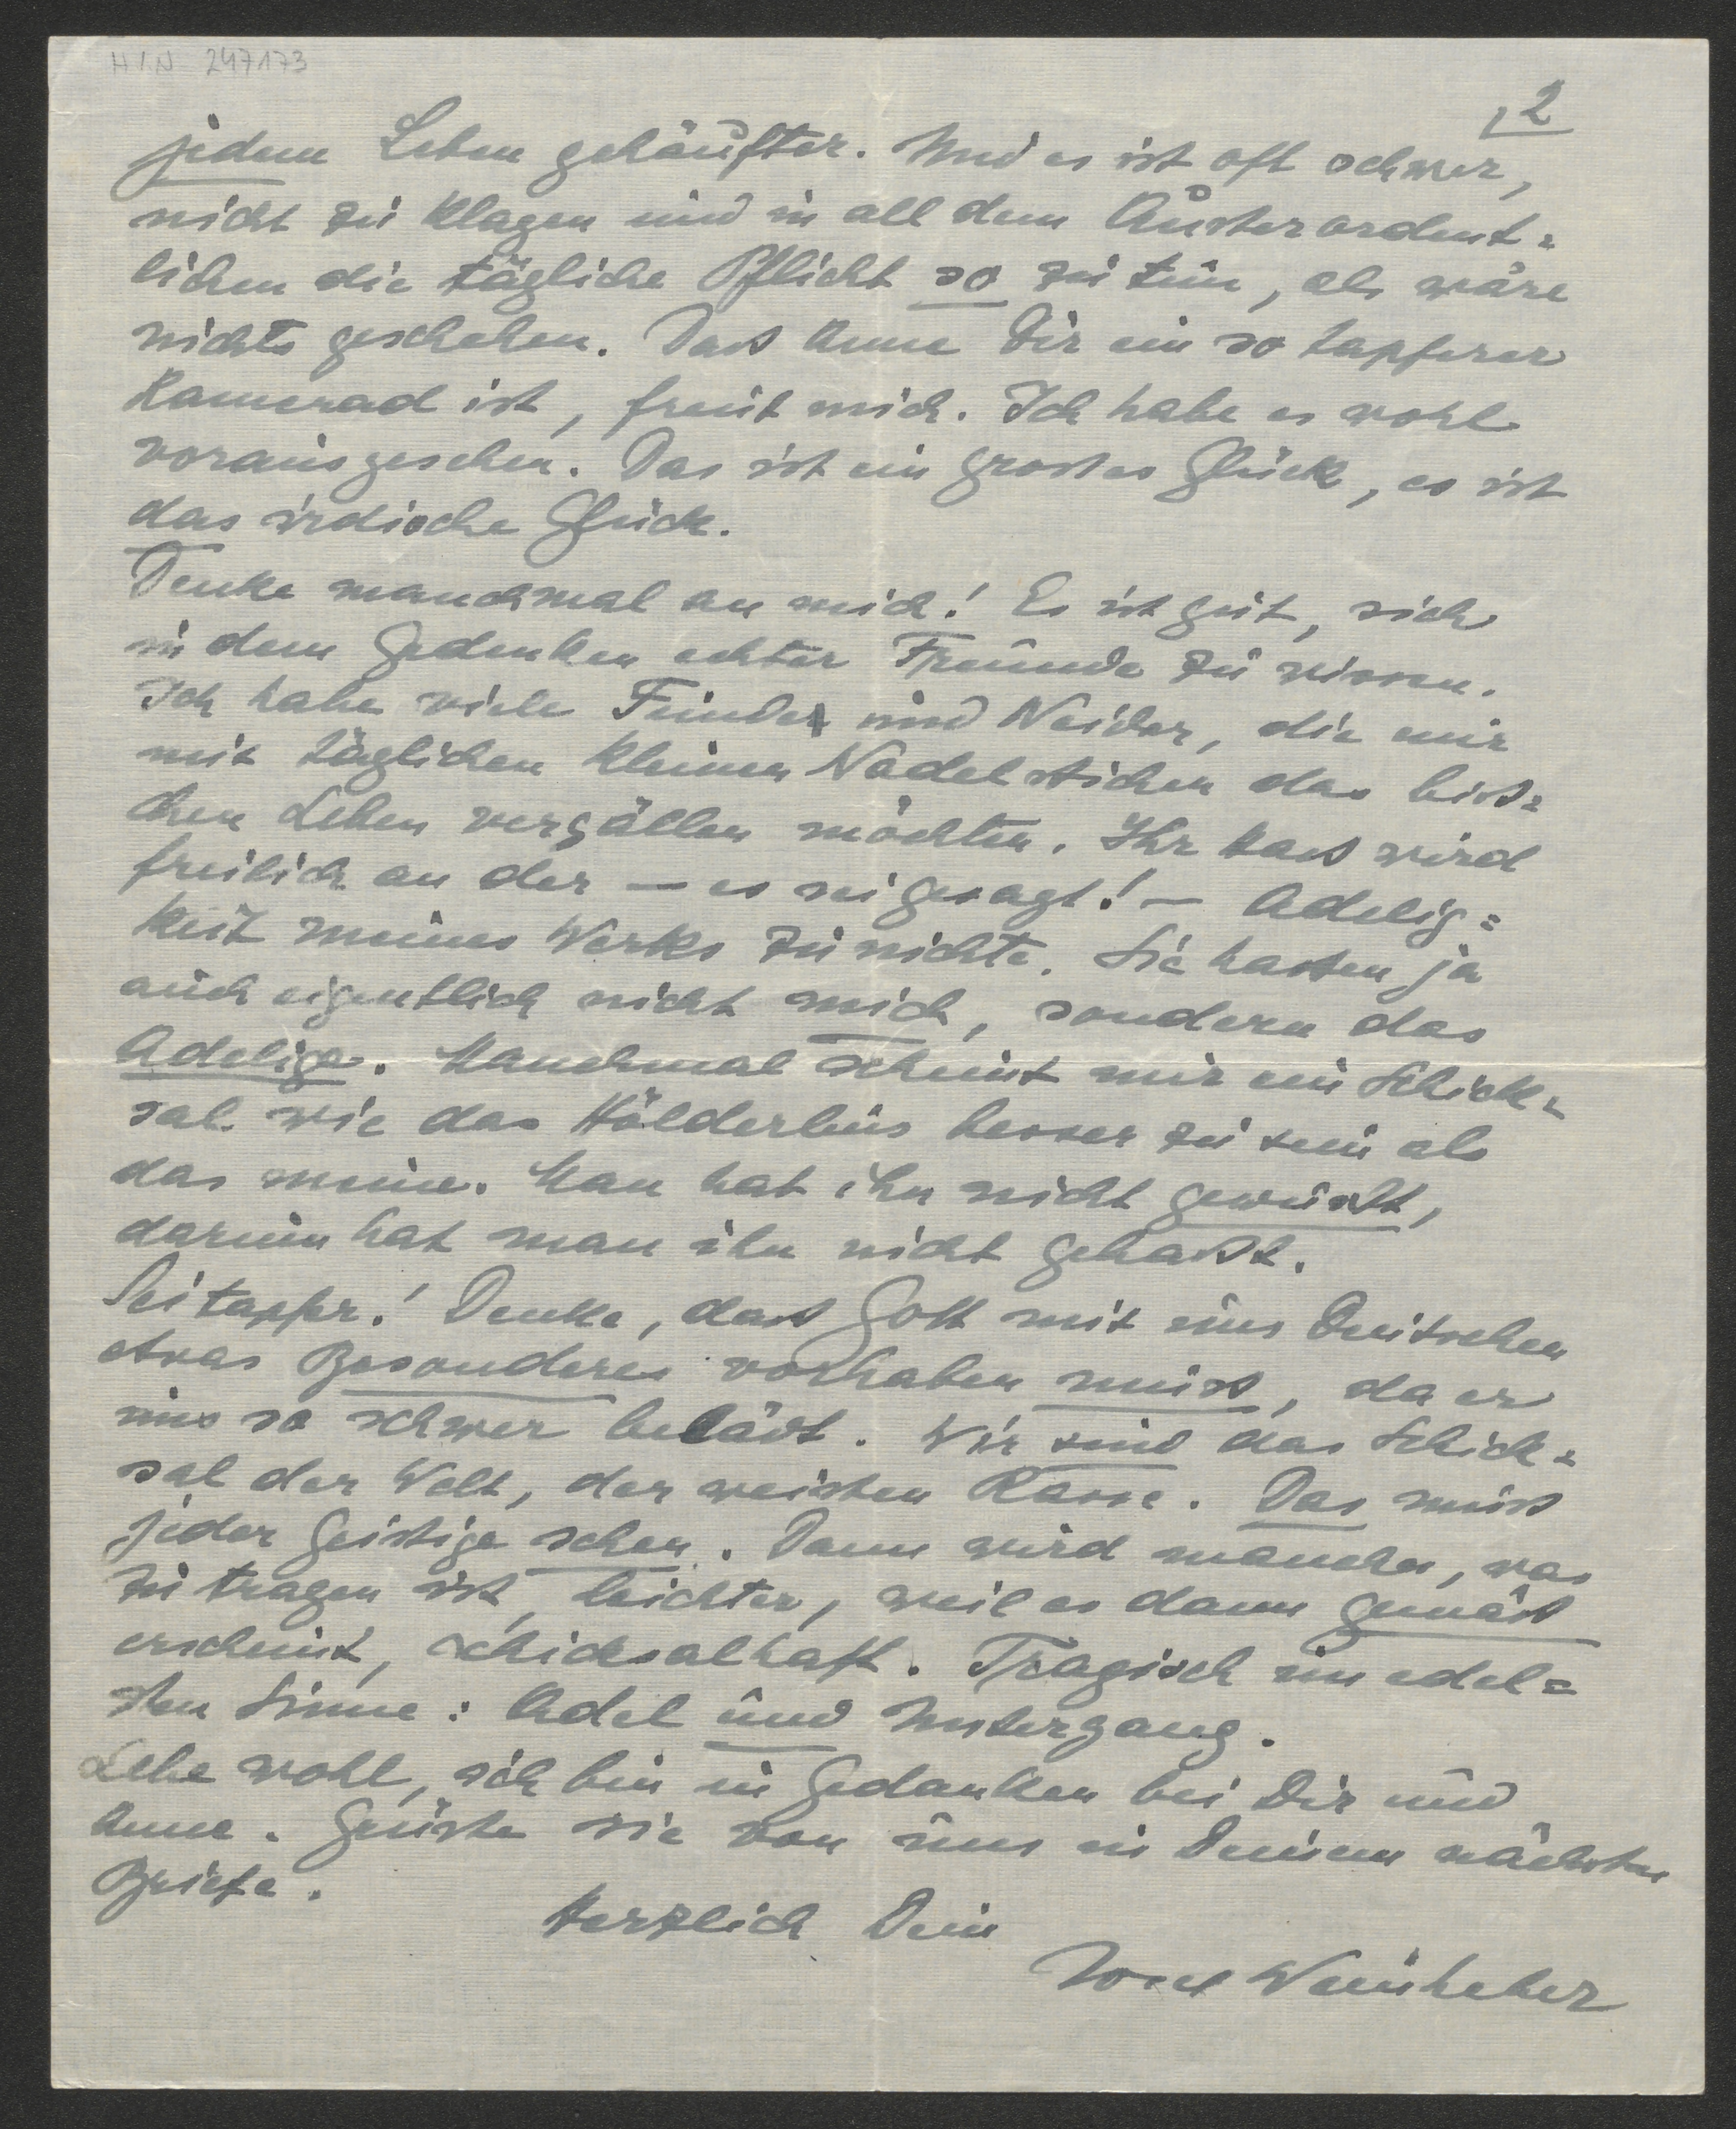 H.I.N. 247173
2
jedem Leben gehäufter. Und es ist oft schwer,
nicht zu klagen und in all dem Außerordent=
lichen die tägliche Pflicht so zu tun, als wäre
nichts geschehen. Daß Anne Dir ein so tapferer
Kamerad ist, freut mich. Ich habe es wohl
vorausgesehen. Das ist ein großes Glück, es ist
das irdische Glück.
Denke manchmal an mich! Es ist gut, sich
in dem Gedenken echter Freunde zu wissen.
Ich habe viele Feinde und Neider, die mir
mit täglichen kleinen Nadelstichen das biß=
chen Leben vergällen möchten. Ihr Haß wird
freilich an der — es sei gesagt! — Adelig=
keit meines Werks zunichte. Sie hassen ja
auch eigentlich nicht mich, sondern das
Adelige. Manchmal scheint mir ein Schick=
sal wie das Hölderlins besser zu sein als
das meine. Man hat ihn nicht gewußt,
darum hat man ihn nicht gehaßt.
Sei tapfer! Denke, daß Gott mit uns Deutschen
etwas Besonderes vorhaben muß, da er
uns so schwer belädt. Wir sind das Schick=
sal der Welt, der weißen Rasse. Das muß
jeder Geistige sehen. Dann wird manches, was
zu tragen ist, leichter, weil es dann gemäß
erscheint, schicksalhaft. Tragisch im edel=
sten Sinne: Adel und Untergang.
Lebe wohl, ich bin in Gedanken bei Dir und
Anne. Grüße sie von uns in Deinem nächsten
Briefe.
Herzlich Dein
Josef Weinheber